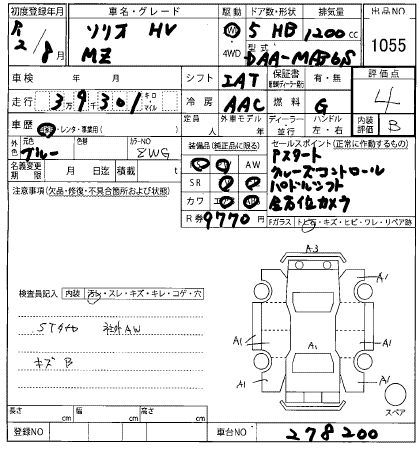 初度登録年月 車名・グレード 駆動 ドア数・形状 排気量 出品NO
R2年8月 ソリオ HV 2WD 5 HB 1200cc 1055
MZ 4WD 型式 DAA-MA36S
車検 年 月 シフト IAT 保証書 有・無 評価点
走行 3万9千301 キロ・マイル 冷房 AAC 燃料 G 4
車歴 レンタ・事業用( ) 定員 人 外車モデル 年 ディーラー 並行 ハンドル 左・右 内装評価 B
外色 元色 ブルー 色替 カラーNO ZWG 装備品(純正品に限る) セールスポイント(正常に作動するもの)
名義変更期限 月 日迄 積載 t AW Pスタート
SR クルーズコントロール
注意事項(欠品・修復・不具合箇所および状態) カワ パドルシフト
全方位カメラ
R券 9770円 Fガラス トビ石・キズ・ヒビ・ワレ・リペア跡
検査員記入 内装 汚れ・スレ・キズ・キレ・コゲ・穴
A3
A1 A1
STタイヤ 社外AW
A1 A1 A1
キズ B
A1 A1
スペア
長さ cm 幅 cm 高さ cm
登録NO 車台NO 278200